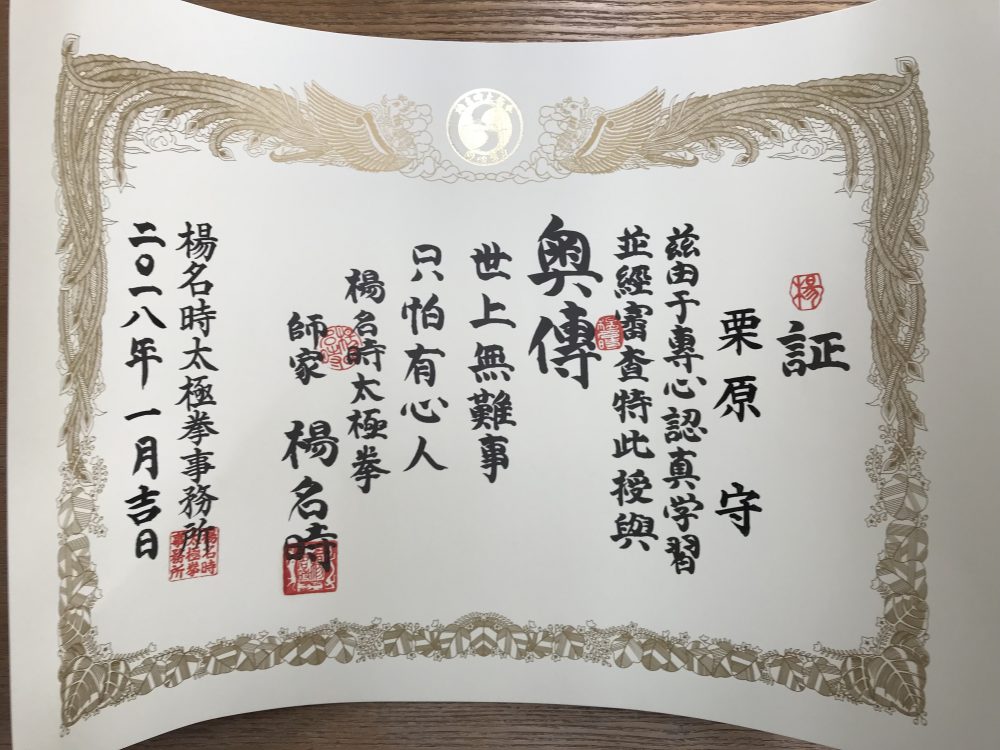 証
楊
栗原 守
玆由于專心認真学習
並經審査特此授與
奥傳
世上無難事
只怕有心人
楊名時太極拳
師家 楊名時
楊名時太極拳事務所
楊名時
太極拳
事務所
二〇一八年一月吉日